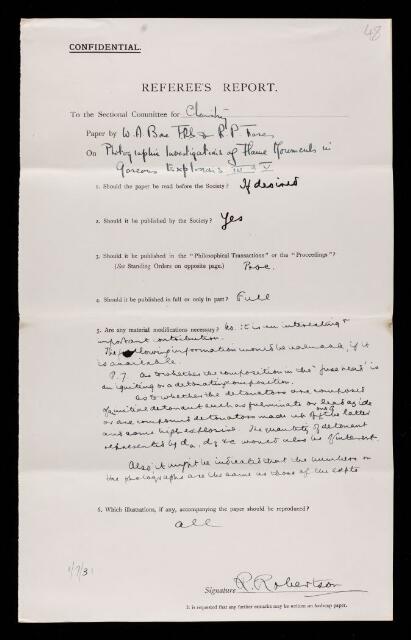 48
CONFIDENTIAL.
REFEREE'S REPORT.
To the Sectional Committee for Chemistry
Paper by W. A. Bone FRS & R. P. Fraser
On Photographic Investigations of Flame Movements in
Gaseous Explosions IV V
1. Should the paper be read before the Society? If desired
2. Should it be published by the Society? Yes
3. Should it be published in the "Philosophical Transactions" or the "Proceedings"?
(See Standing Orders on opposite page.) Proc.
4. Should it be published in full or only in part? Full
5. Are any material modifications necessary? No. it is an interesting &
important contribution.
The following information would be valuable, if it
is available.
P. 7 as to whether the composition in the "fuse head" is
an igniting or a detonating composition.
as to whether the detonators are composed
of initial detonant such as fulminate or lead azide
or are compound detonators made up of one of the latter
and some high explosive. The quantity of detonant
represented by d2, d4 &c would also be of interest.
Also it might be indicated that the numbers on
the photographs are the same as those of the expts
6. Which illustrations, if any, accompanying the paper should be reproduced?
all
1/7/31
Signature R. Robertson
It is requested that any further remarks may be written on foolscap paper.